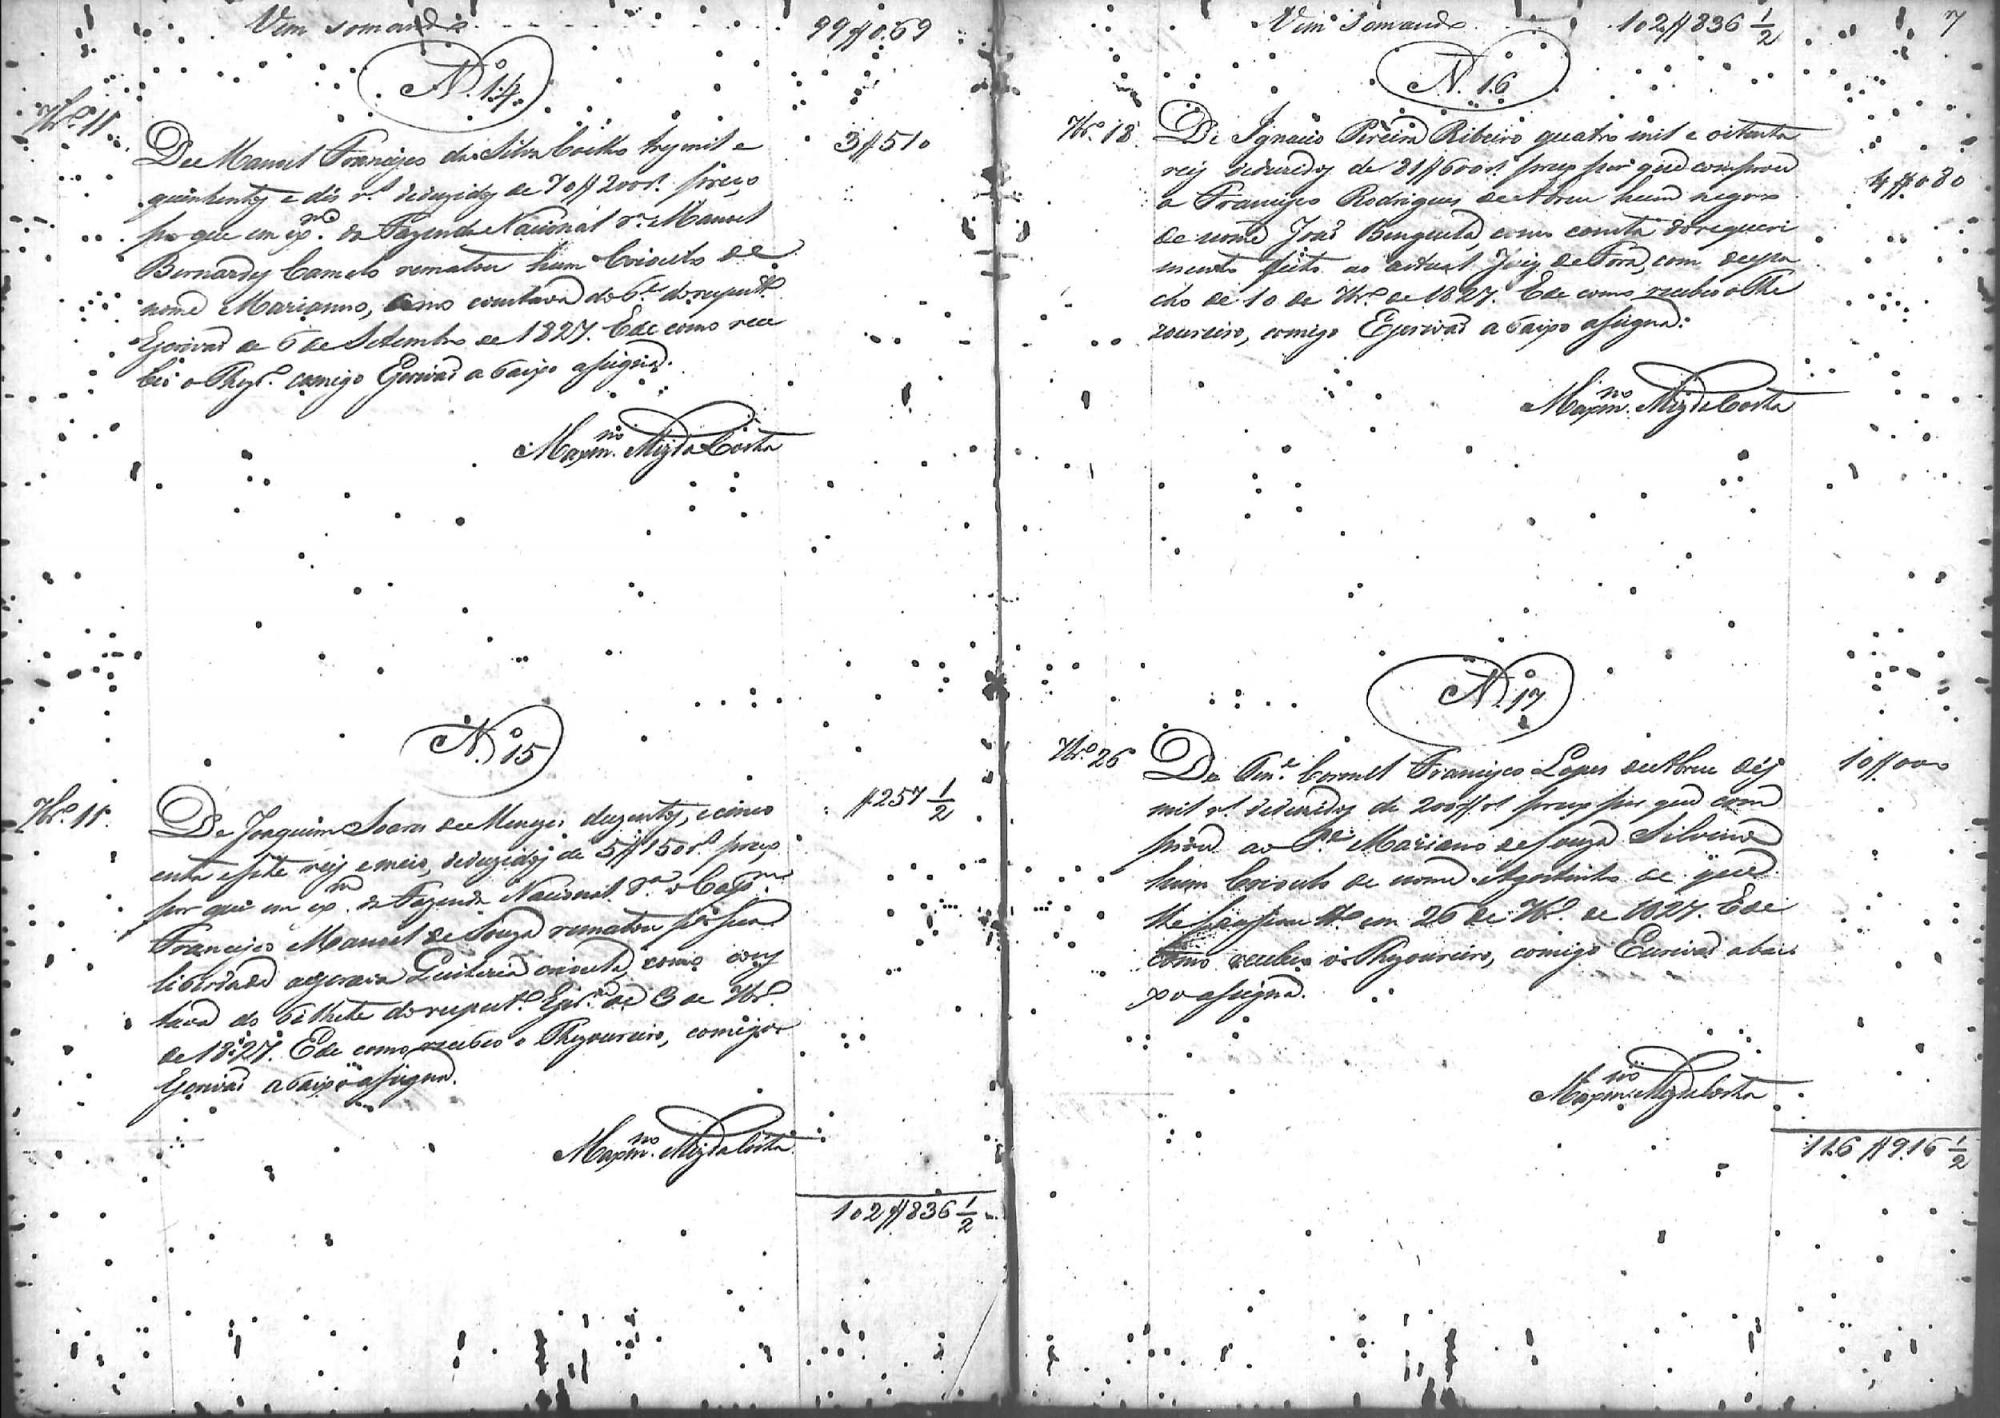 Vem somando 99$069
N.º 14
7br.º 11
De Manoel Francisco da Silva Coelho trez mil e 3$510
quinhentos e dés r.s deduzidos de 70$200 r.s preço,
por que em ex.m da Fazenda Nacional r.a Manoel
Bernardes Camelo rematou hum Crioulo de
nome Marianno, como constava do b.e do respect.º
Escrivaõ de 6 de Setembro de 1827. E de como rece
beo o Thez.º comigo Escrivaõ abaixo assigna.
Maxim.no Miz da Costa
N.º 15
7br.º 11
De Joaquim Soares de Menezes duzentos, e cinco $257 1/2
enta e sete reis e meio, deduzidos de 5$150 r.s preço
por que em ex.m da Fazenda Nacional r.a o Cap.m
Francisco Manoel de Souza rematou por sua
liberdade a escrava Quiteria crioula, como cons
tava do bilhete do respect.º Escr.m de 3 de 7br.º
de 1827. E de como recebeo o Thezoureiro, comigo
Escrivaõ abaixo assigna.
Maxim.no Miz da Costa
102$836 1/2
Vem somando 102$836 1/2 7
N. 16
7br.º 18
De Ignacio Pereira Ribeiro quatro mil e oitenta 4$080
reis deduzidos de 81$600 r.s preço por que comprou
a Francisco Rodrigues de Abreu hum negro
de nome Joaõ Benguela, como consta do requeri
mento feito ao actual Juiz de Fora, com despa
cho de 10 de 7br.º de 1827. E de como recebeo o The
zoureiro, comigo Escrivaõ abaixo assigna.
Maxim.no Miz da Costa
N. 17
7br.º 26
Do Ten.e Coronel Francisco Lopes de Abreu dés 10$000
mil r.s deduzidos de 200$ r.s preço por que com
prou ao P.e Mariano de Souza Silvino
hum Crioulo de nome Agostinho de que
lhe em 26 de 7br.º de 1827. E de
como recebeo o Thezoureiro, comigo Escrivaõ abai
xo assigna.
Maxim.no Miz da Costa
116$916 1/2